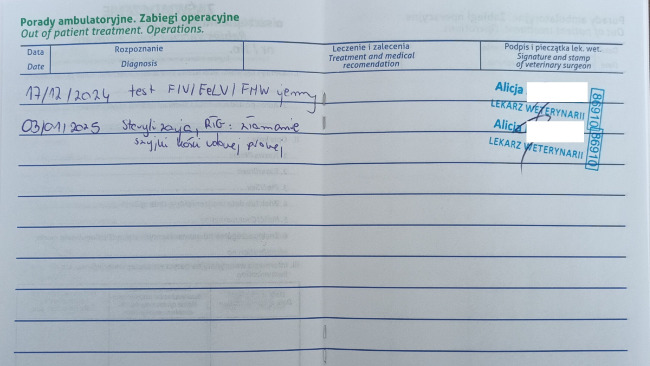 Porady ambulatoryjne. Zabiegi operacyjne
Out of patient treatment. Operations.
Data
Date
Rozpoznanie
Diagnosis
Leczenie i zalecenia
Treatment and medical
recomendation
Podpis i pieczątka lek. wet.
Signature and stamp
of veterinary surgeon
17/12/2024 test FIV/FeLV/FHW ujemny
Alicja
LEKARZ WETERYNARII
86910
03/01/2025 Sterylizacja, RTG: złamanie
szyjki kości udowej prawej
Alicja
LEKARZ WETERYNARII
86910